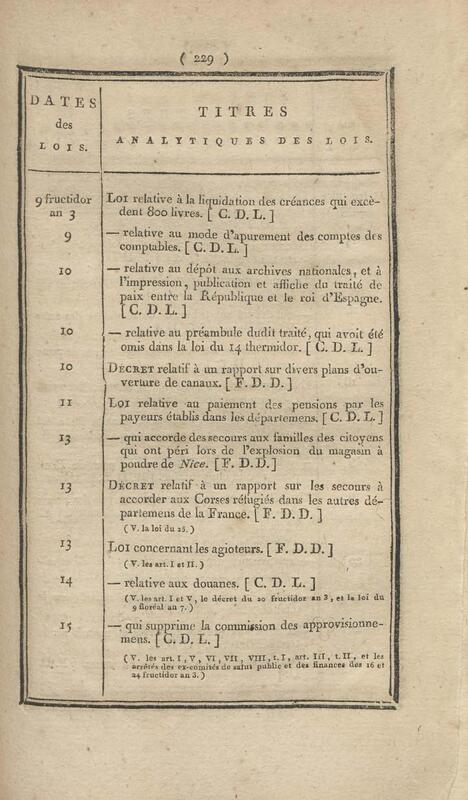 ( 229 )
DATES
des
LOIS.
TITRES
ANALYTIQUES DES LOIS.
9 fructidor
an 3
LOI relative à la liquidation des créances qui excè-
dent 800 livres. [ C. D. L. ]
9
— relative au mode d'apurement des comptes des
comptables. [ C. D. L. ]
10
— relative au dépôt aux archives nationales, et à
l'impression, publication et affiche du traité de
paix entre la République et le roi d'Espagne.
[ C. D. L. ]
10
— relative au préambule dudit traité, qui avoit été
omis dans la loi du 14 thermidor. [ C. D. L. ]
10
DÉCRET relatif à un rapport sur divers plans d'ou-
verture de canaux. [ F. D. D. ]
11
LOI relative au paiement des pensions par les
payeurs établis dans les départemens. [ C. D. L. ]
13
— qui accorde des secours aux familles des citoyens
qui ont péri lors de l'explosion du magasin à
poudre de Nice. [ F. D. D. ]
13
DÉCRET relatif à un rapport sur les secours à
accorder aux Corses réfugiés dans les autres dé-
partemens de la France. [ F. D. D. ]
( V. la loi du 25. )
13
LOI concernant les agioteurs. [ F. D. D. ]
( V. les art. I et II. )
14
— relative aux douanes. [ C. D. L. ]
( V. les art. I et V, le décret du 20 fructidor an 3, et la loi du
9 floréal an 7. )
15
— qui supprime la commission des approvisionne-
mens. [ C. D. L. ]
( V. les art. I, V, VI, VII, VIII, t. I, art. III, t. II, et les
arrêtés des ex-comités de salut public et des finances des 16 et
24 fructidor an 3. )